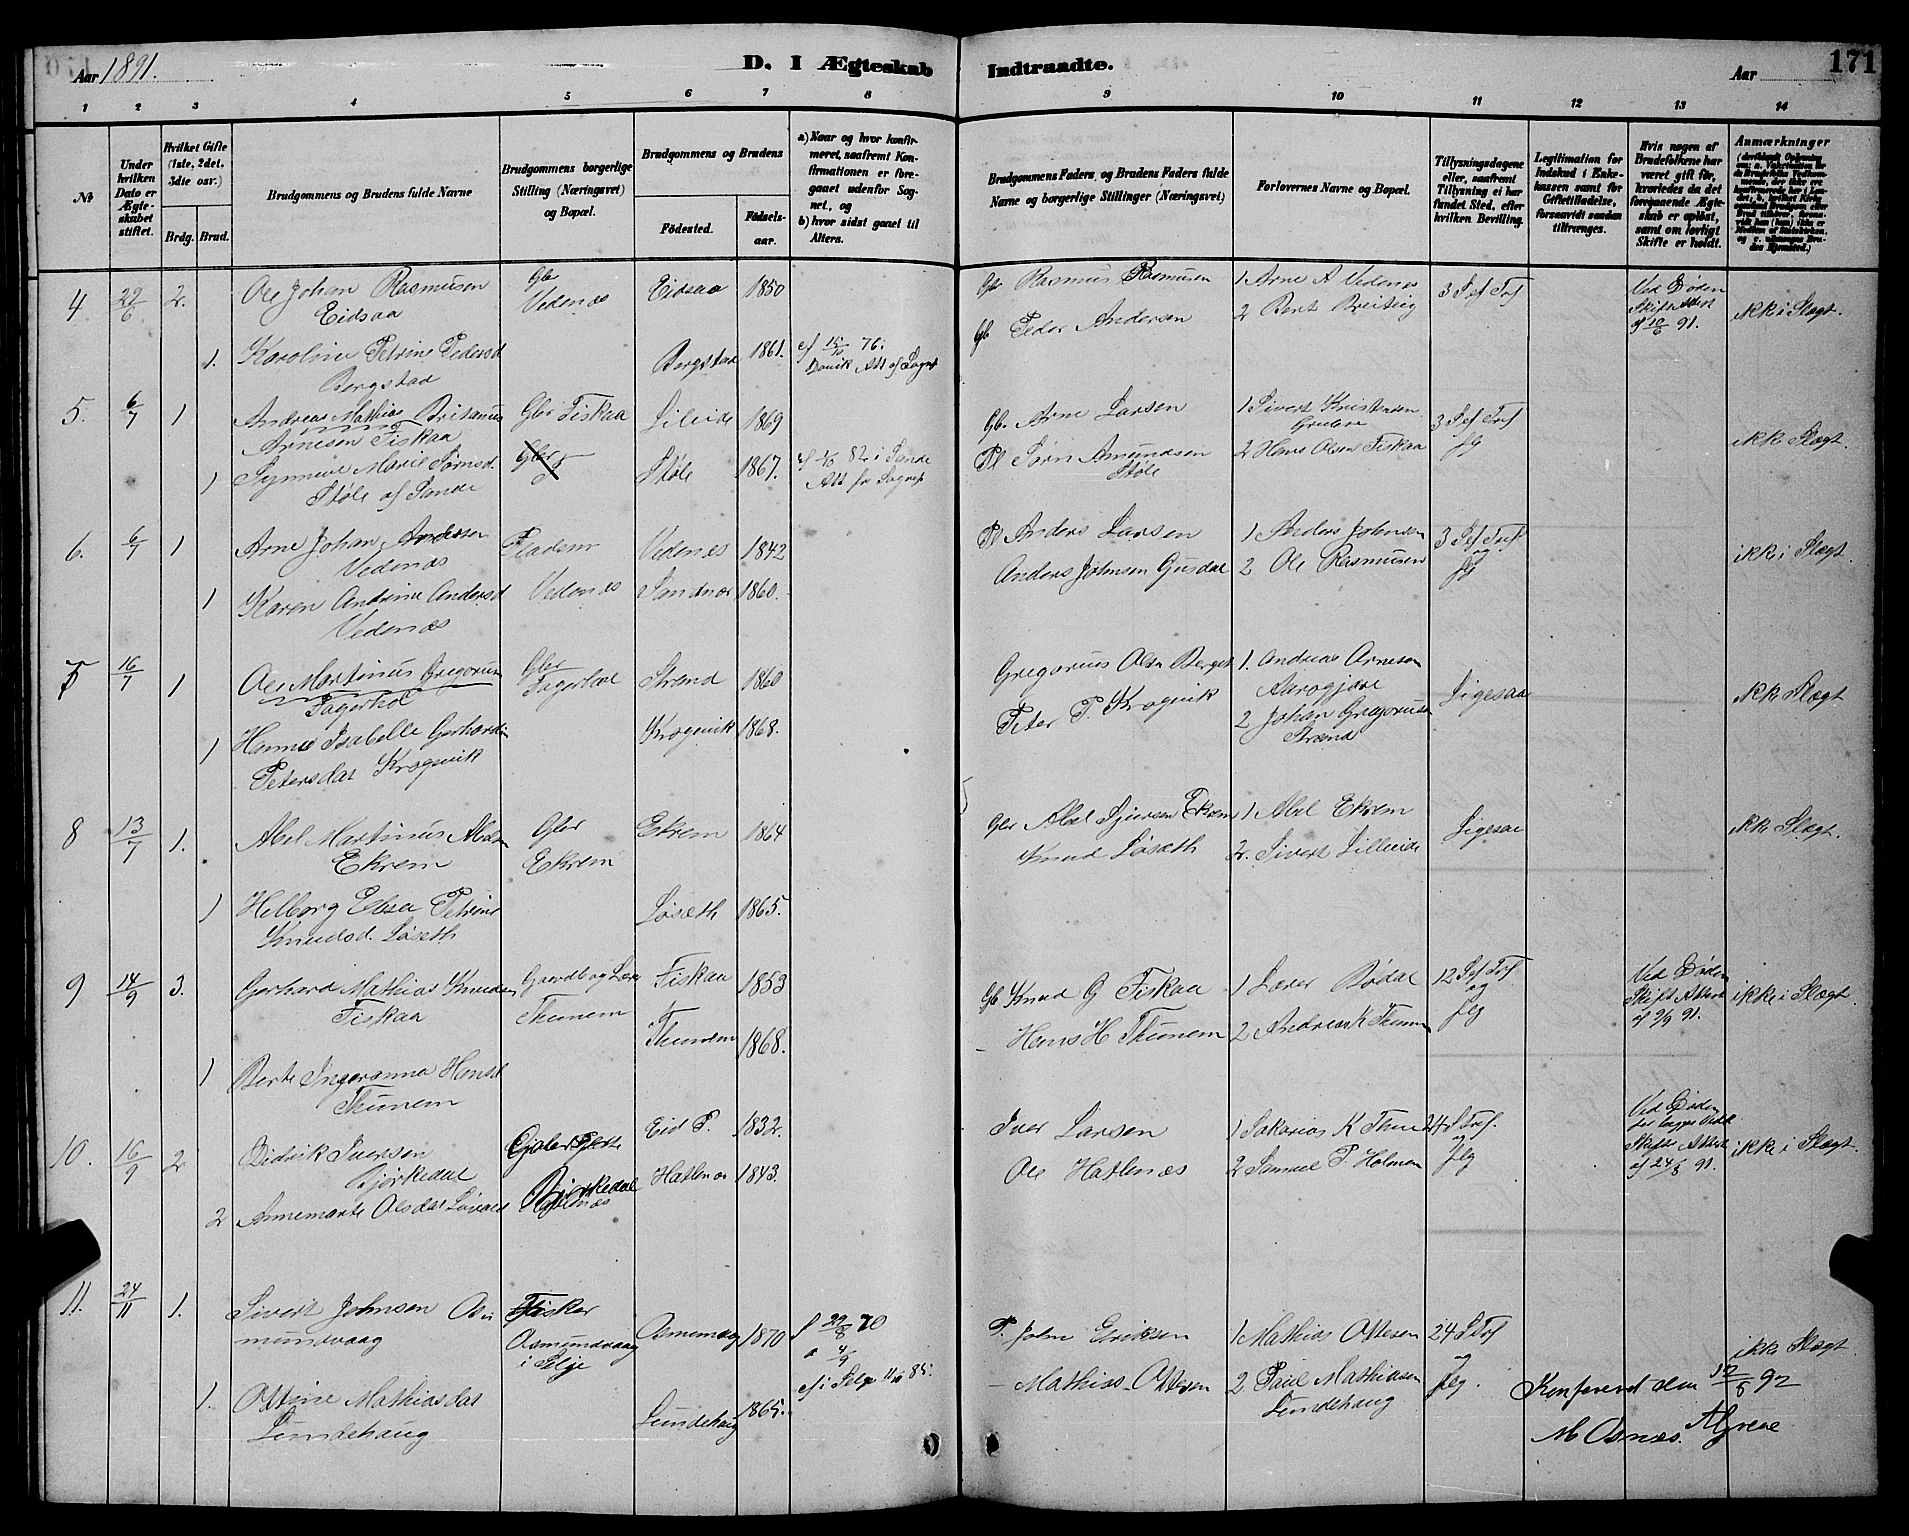 Aar 1891.
D. I Ægteskab Indtraadte.
Aar
171
1 2 3 4 5 6 7 8 9 10 11 12 13 14
№
Under hvilken Dato er Ægteskabet stiftet.
Hvilket Gifte (1ste, 2det, 3die osv.)
Brdg. Brud.
Brudgommens og Brudens fulde Navne
Brudgommens borgerlige Stilling (Næringsvei) og Bopæl.
Brudgommens og Brudens
Fødested.
Fødselsaar.
a) Naar og hvor konfirmeret, saafremt Konfirmationen er foregaaet udenfor Sognet, og
b) hvor sidst gaaet til Alters.
Brudgommens Faders og Brudens Faders fulde Navne og borgerlige Stillinger (Næringsvei)
Forlovernes Navne og Bopæl.
Tillysningsdagene eller, saafremt Tillysning ei har fundet Sted, efter hvilken Bevilling.
Legitimation for Indskud i Enkekassen samt for Giftetilladelse, forsaavidt saadan tiltrænges.
Hvis nogen af Brudefolkene har været gift før, hvorledes da det foregaaende Ægteskab er opløst, samt om lovligt Skifte er holdt.
Anmærkninger
4 29/6 2. Ole Johan Rasmusen Eidsaa Gbr Vedenes Eidsaa 1850 Gbr Rasmus Rasmusen 1 Arne A Vedenes 3 S ef Tref Ved Døden Skifte Attest af 10/6 91. ikke i Slægt.
1. Karoline Petrine Pedersd Bergstad Bergstad 1861. cf 15/10 76 i Davik Att af Sognep Gb Peder Andersen 2 Bent Breiteig
5. 6/7 1 Andreas Mathias Britanus Arnesen Fiskaa Gbr Fiskaa Lileide 1869 Gb. Arne Larsen 1 Sivert Kristensen 3 S ef Tref flg ikke Slægt.
1 Synneve Marie Sørnsd. Støle af Sande Gbr Støle 1867. cf 1/10 82 i Sande Att fr Sognep Pl Sørn Amundsen Støle 2 Hans Olsen Fiskaa
6. 6/7 1 Arne Johan Andersen Vedenes Pladsm Vedenes Vedenes 1842 Pl Anders Larsen 1 Anders Johnsen 3 S ef Tref og flg ikke i Slægt
1 Karen Andrine Andersd Vedenes Sandnes 1860. Anders Johnsen Gusdal 2 Ole Rasmusen
7 16/7 1 Ole Martinus Gregorius Fagerhol Gbr Fagerhol Strand 1860 Gregorius Olsen Berget 1. Andreas Arnesen Aarsgjøre Ligesaa ikke Slægt
1 Hanna Isabelle Gerhardin Petersdat Krogsvik Krogsvik 1868. Peter P. Krogvik 2 Johan Gregorius Strand
8 13/7 1. Abel Martinus Abels Ekrem Gbr Ekrem Ekrem 1864 Gbr Abel Sjursen Ekrem 1 Abel Ekrem Ligesaa ikke Slægt.
1 Helborg Elisa Petrine Knudsd. Løseth Løseth 1865. Knud Løseth 2. Sivert Lilleide
9 14/9 3. Gerhard Mathias Knudsen Fiskaa Gaardb og Lær Thunem Fiskaa 1853 Gb Knud G Fiskaa 1 Lærer Rødal 12 S ef Tref og flg Ved Døden Skifte Attest af 9/9 91. ikke i Slægt.
1 Berte Ingeranna Hansd Thunem Thunem 1868. Hans H Thunem 2 Andreas K Thunem
10. 16/9 2 Didrik Iversen Bjørkedal Bjørkedal Eid P. 1832. Iver Larsen 1 Sakarias K Thune 24 S Tref. og flg Ved Døden Skifte Attest af 24/8 91. ikke i Slægt.
2 Annemarte Olsdat Løvold Hatlenes 1843. Ole Hatlenæs 2 Samuel P. Holmen
11. 24/11 1. Sivert Johnsen Osmundvaag Fisker Osmundvaag i Selje Osmundvg 1870 f 29/8 70 P. John Eriksen 1 Mathias Ottesen 24 S Tref og flg. ikke Slægt.
1. Ottine Mathiasdat Lundehaug Lundehaug 1865. cf i Selje 11/10 85. Mathias Ottesen 2 Paul Mathiasen Lundehaug
Konfereret den 12/5 92
M Osnæs.